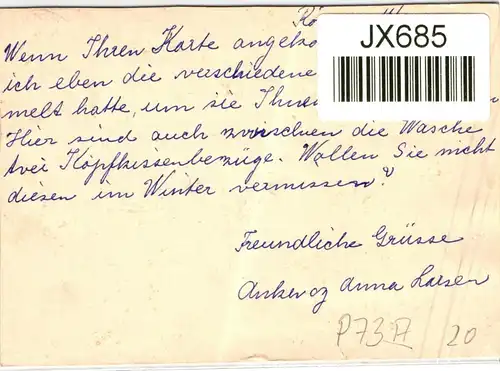 JX685
Wenn Ihren Karte angeko
ich eben die verschiedene
melt hatte, um sie Ihnen
Hier sind auch zwischen die Wäsche
zwei Kopfkissenbezüge. Wollen Sie nicht
diesen im Winter vermissen?
Freundliche Grüsse
Anna
P73A 20